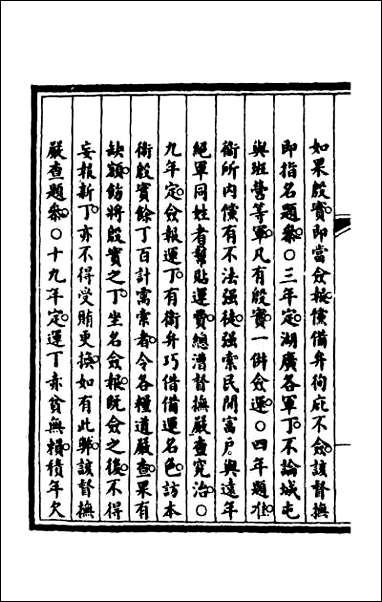 如果殷實即當僉報儻備弁徇庇不僉該督撫
即指名題叅○三年定湖廣各軍丁不論城屯
與班營等軍凡有殷實一併僉運○四年題准
衞所内儻有不法強徒強索民間富戶與遠年
絕軍同姓者幫貼運費總漕督撫嚴查究治○
九年定僉報運丁有衞弁巧借備運名色訪本
衞殷實餘丁百計需索者令各糧道嚴查果有
缺額飭將殷實之丁坐名僉報既僉之後不得
妄報新丁亦不得受賄更換如有此弊該督撫
嚴查題叅○十九年定運丁赤貧無糧積年欠